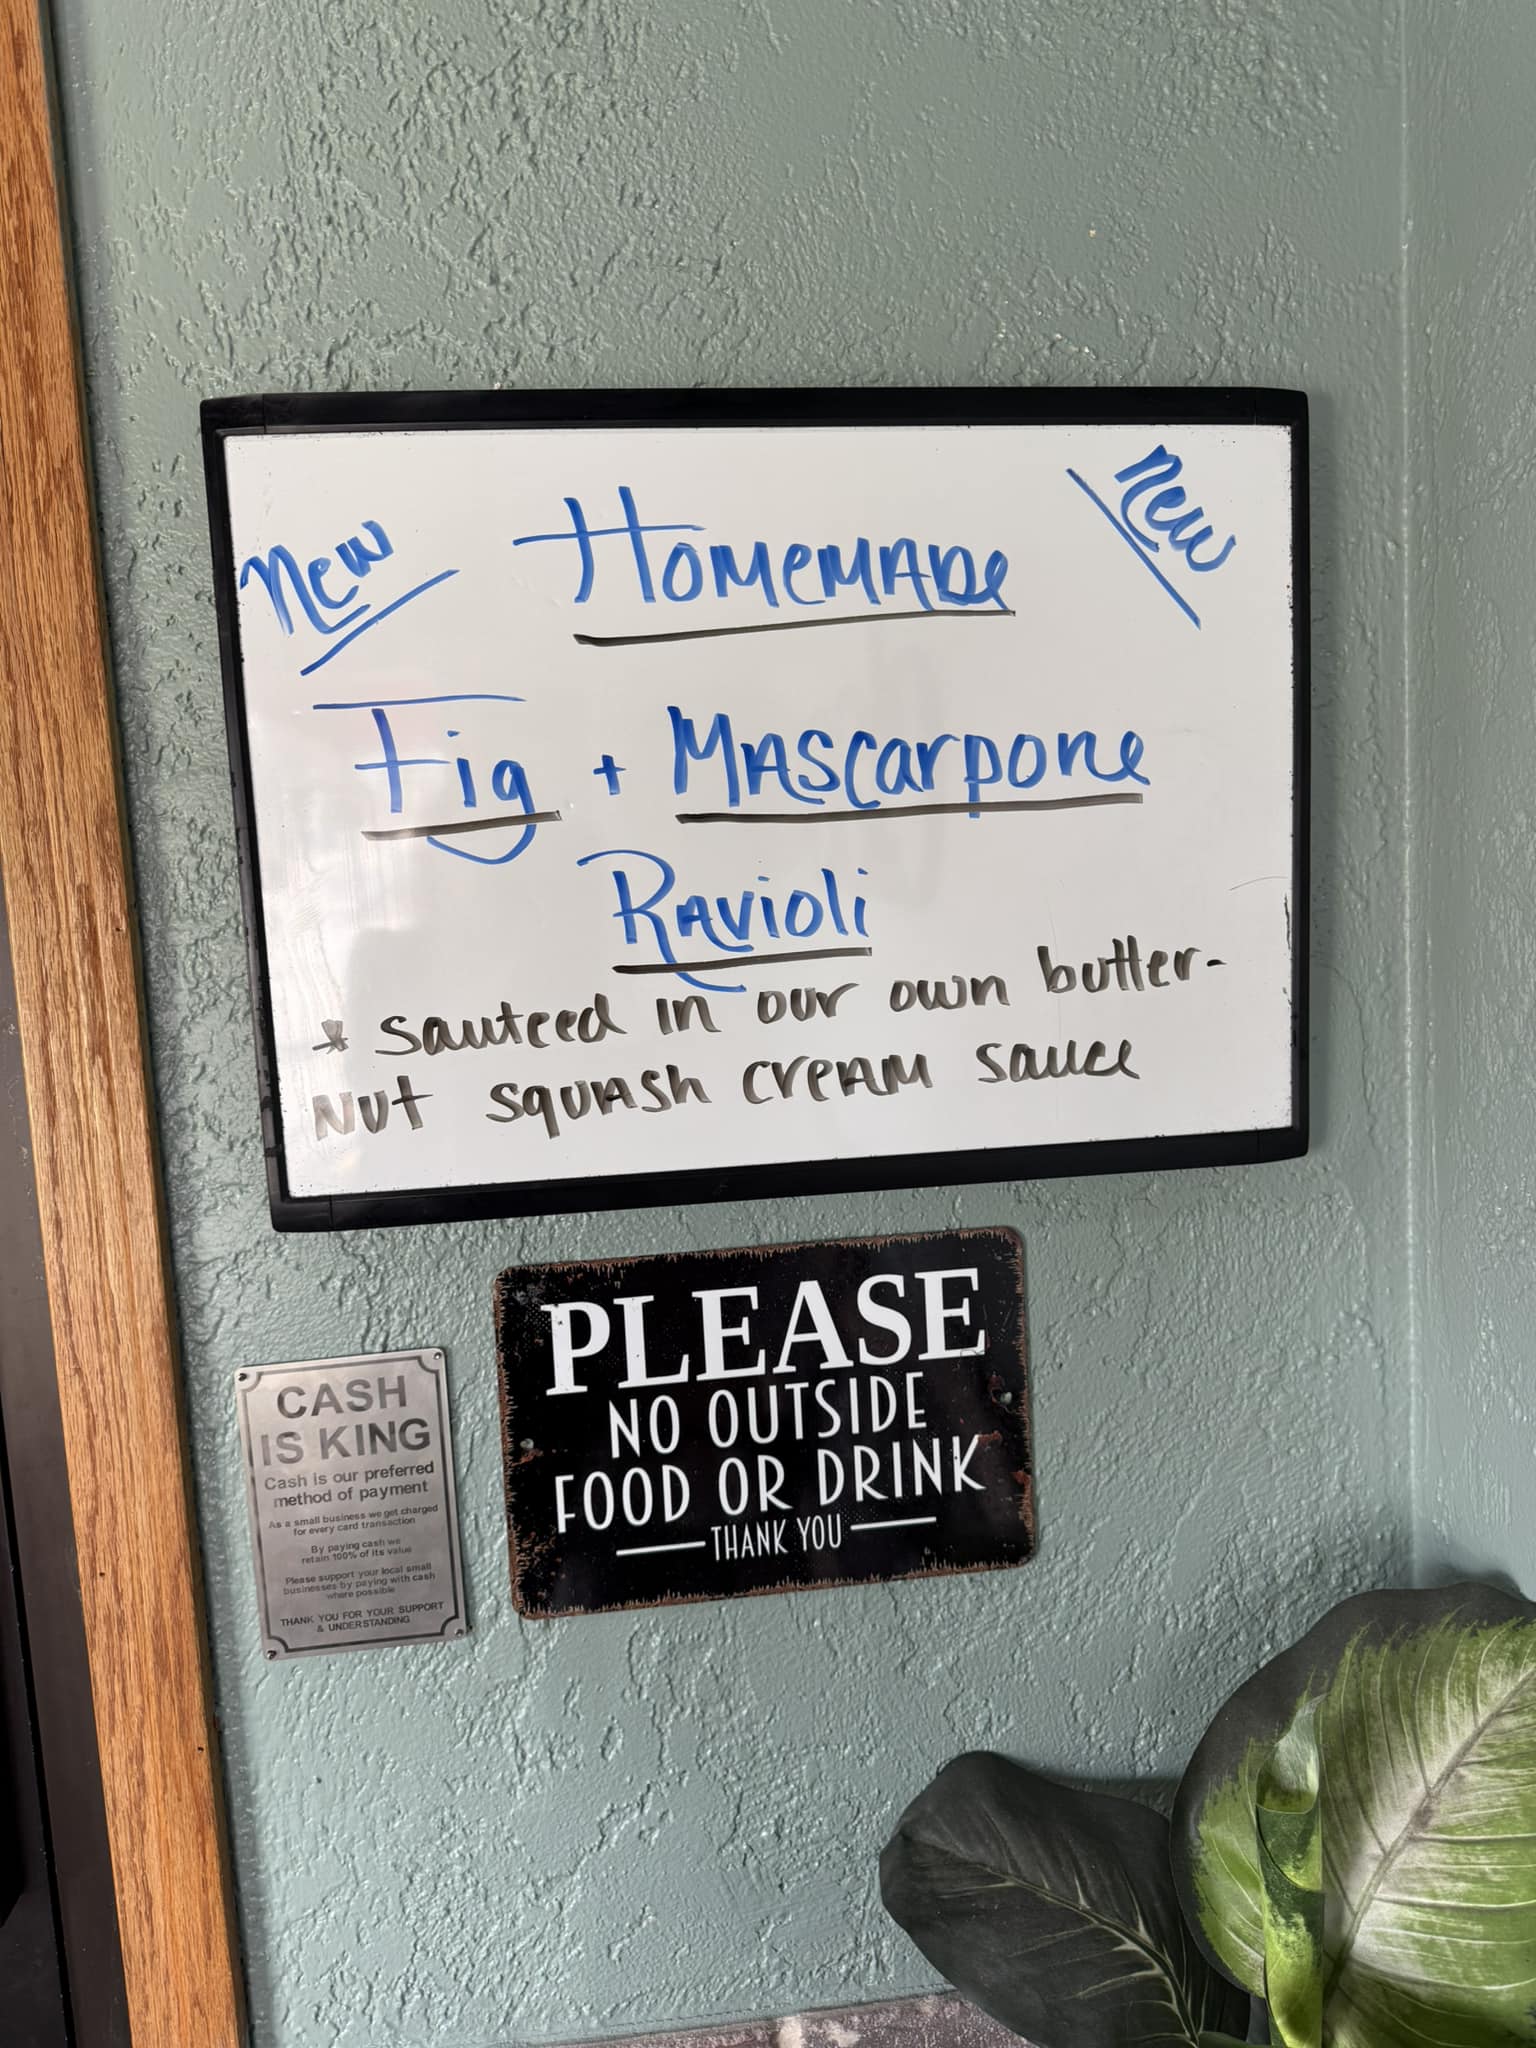 New
Homemade
New
Fig + Mascarpone
Ravioli
* sauteed in our own butter-
nut squash cream sauce
PLEASE
NO OUTSIDE
FOOD OR DRINK
THANK YOU
CASH
IS KING
Cash is our preferred
method of payment
As a small business we get charged
for every card transaction
By paying cash we
retain 100% of its value
Please support your local small
businesses by paying with cash
where possible
THANK YOU FOR YOUR SUPPORT
& UNDERSTANDING